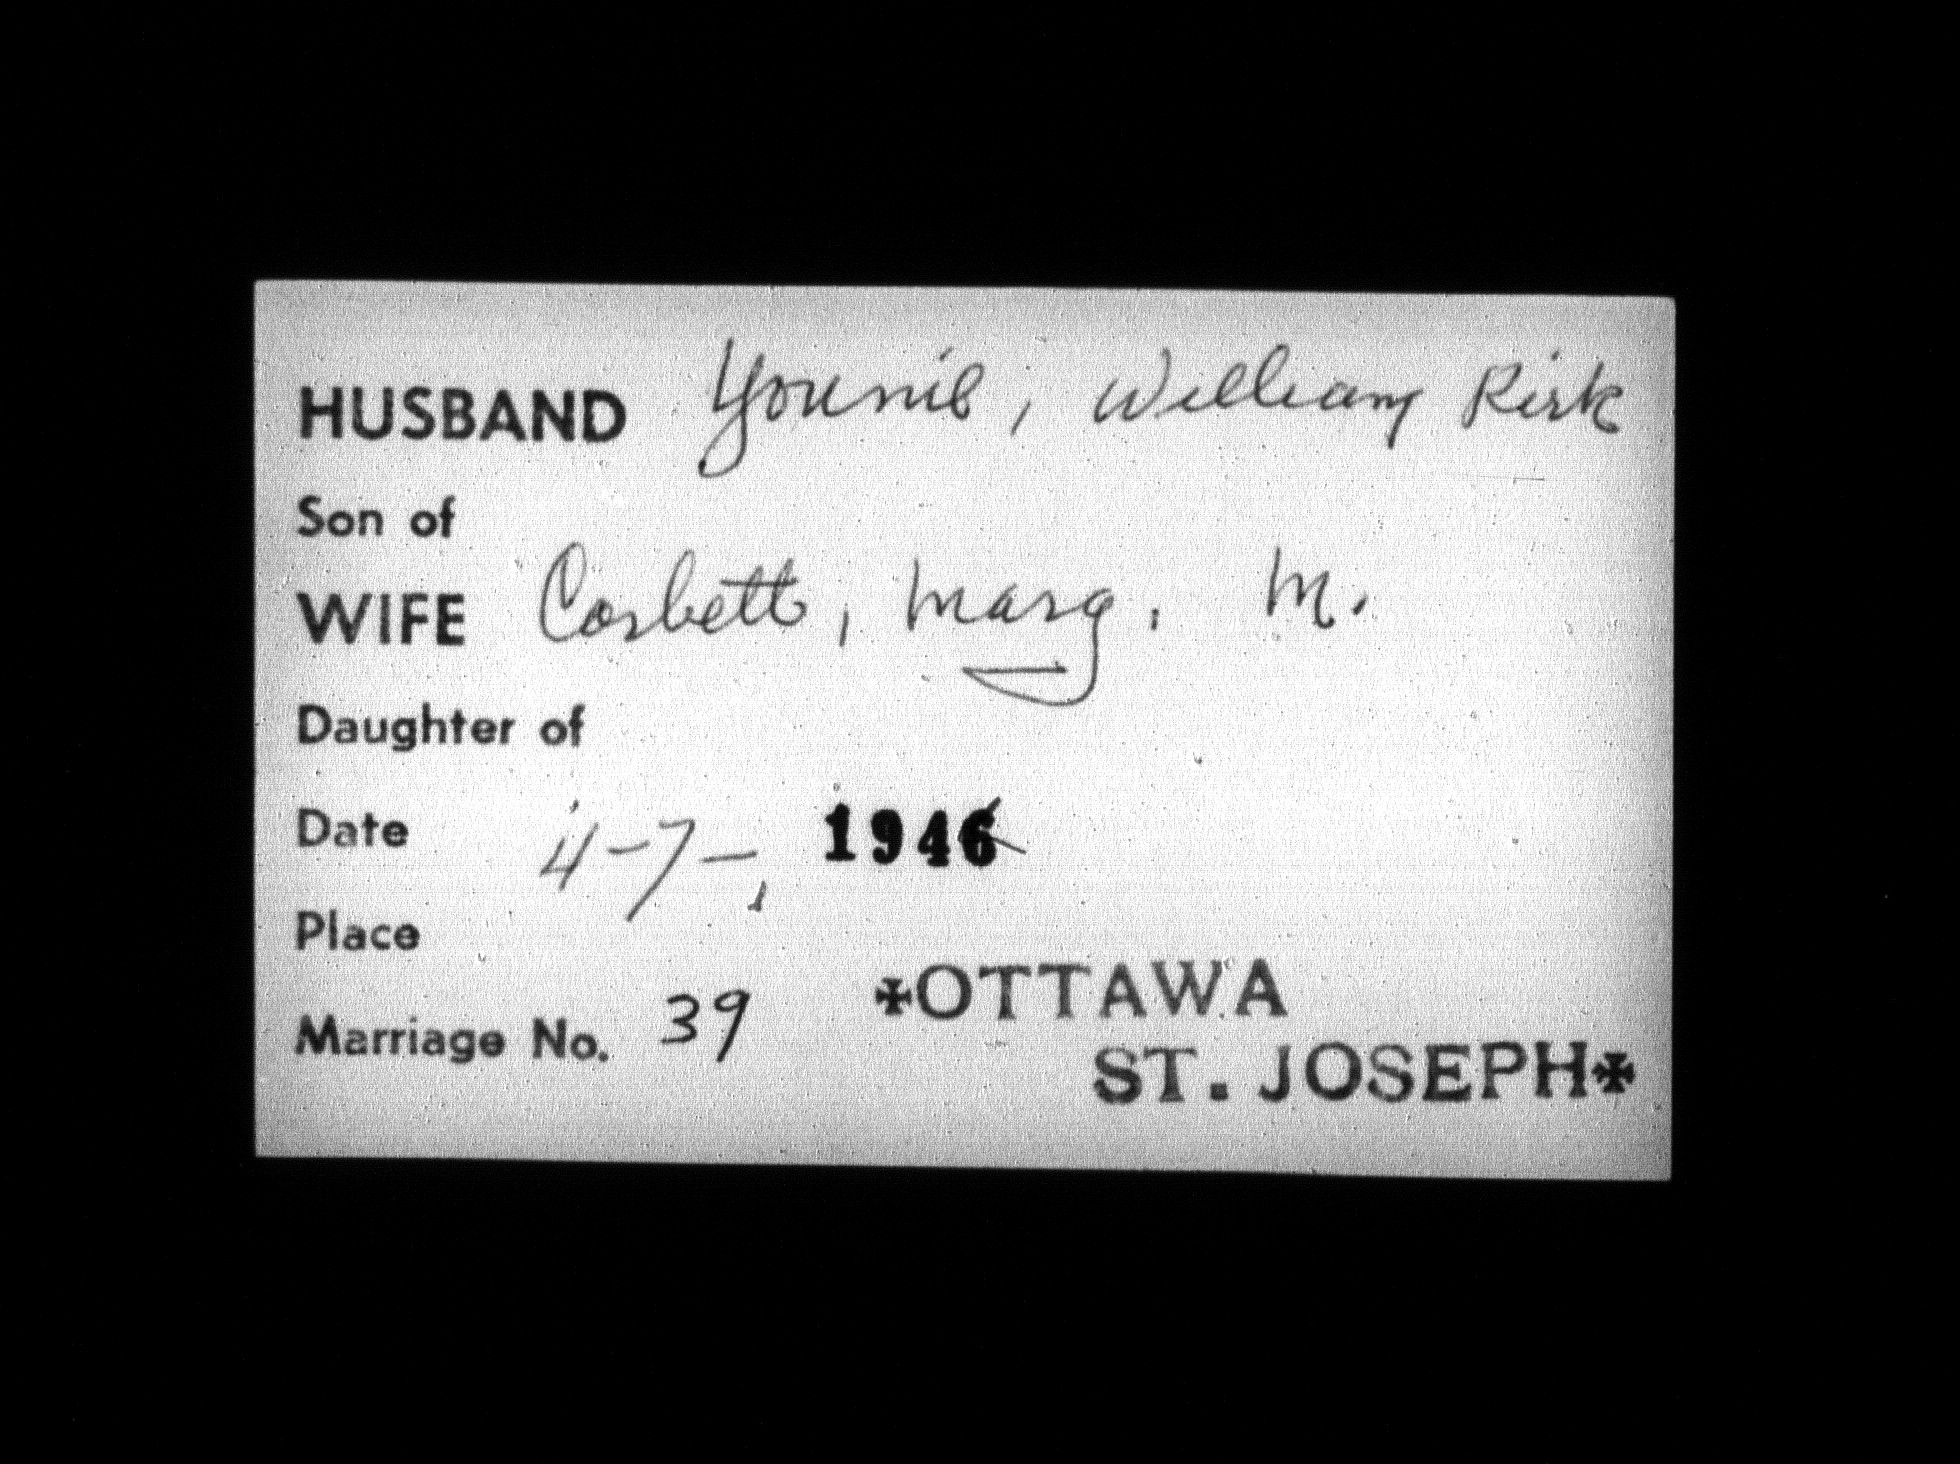 HUSBAND Younie, William Kirk
Son of
WIFE Corbett, Marg. M.
Daughter of
Date 4-7-, 1946
Place
✠OTTAWA
Marriage No. 39
ST. JOSEPH✠